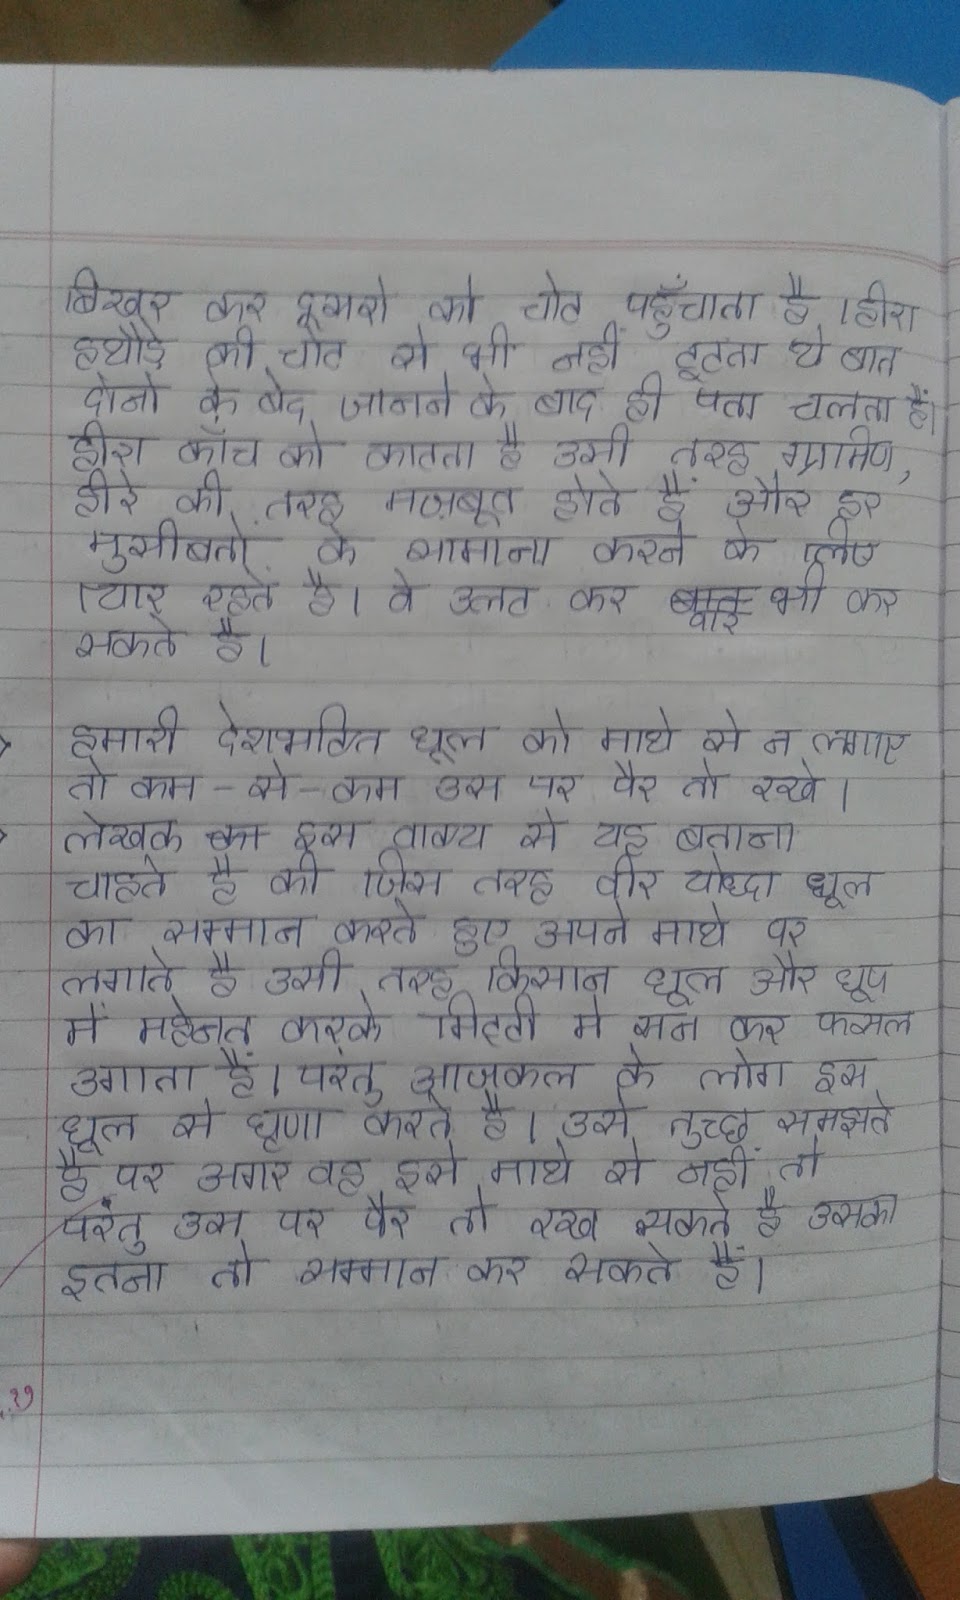 बिखर कर दूसरो को चोट पहुँचाता है ।हीरा
हथौड़े की चोट से भी नहीं टूटता ये बात
दोनो के बेद जानने के बाद ही पता चलता हैं।
हीरा काँच को काटता है उसी तरह ग्रामिण,
हीरे की तरह मज़बूत होते हैं और हर
मुसीबतो के सामाना करने के लिए
त्यार रहते है। वे उलट कर वार भी कर
सकते है।
हमारी देशभक्ति धूल को माथे से न लगाए
तो कम-से-कम उस पर पैर तो रखे।
लेखक का इस वाक्य से यह बताना
चाहते है की जिस तरह वीर योद्धा धूल
का सम्मान करते हुए अपने माथे पर
लगाते है उसी तरह किसान धूल और धूप
में महेनत करके मिट्टी मे सन कर फसल
उगाता हैं। परंतु आजकल के लोग इस
धूल से घृणा करते है। उसे तुच्छ समझते
है पर अगर वह इसे माथे से नहीं तो
परंतु उस पर पैर तो रख सकते है उसका
इतना तो सम्मान कर सकते हैं।